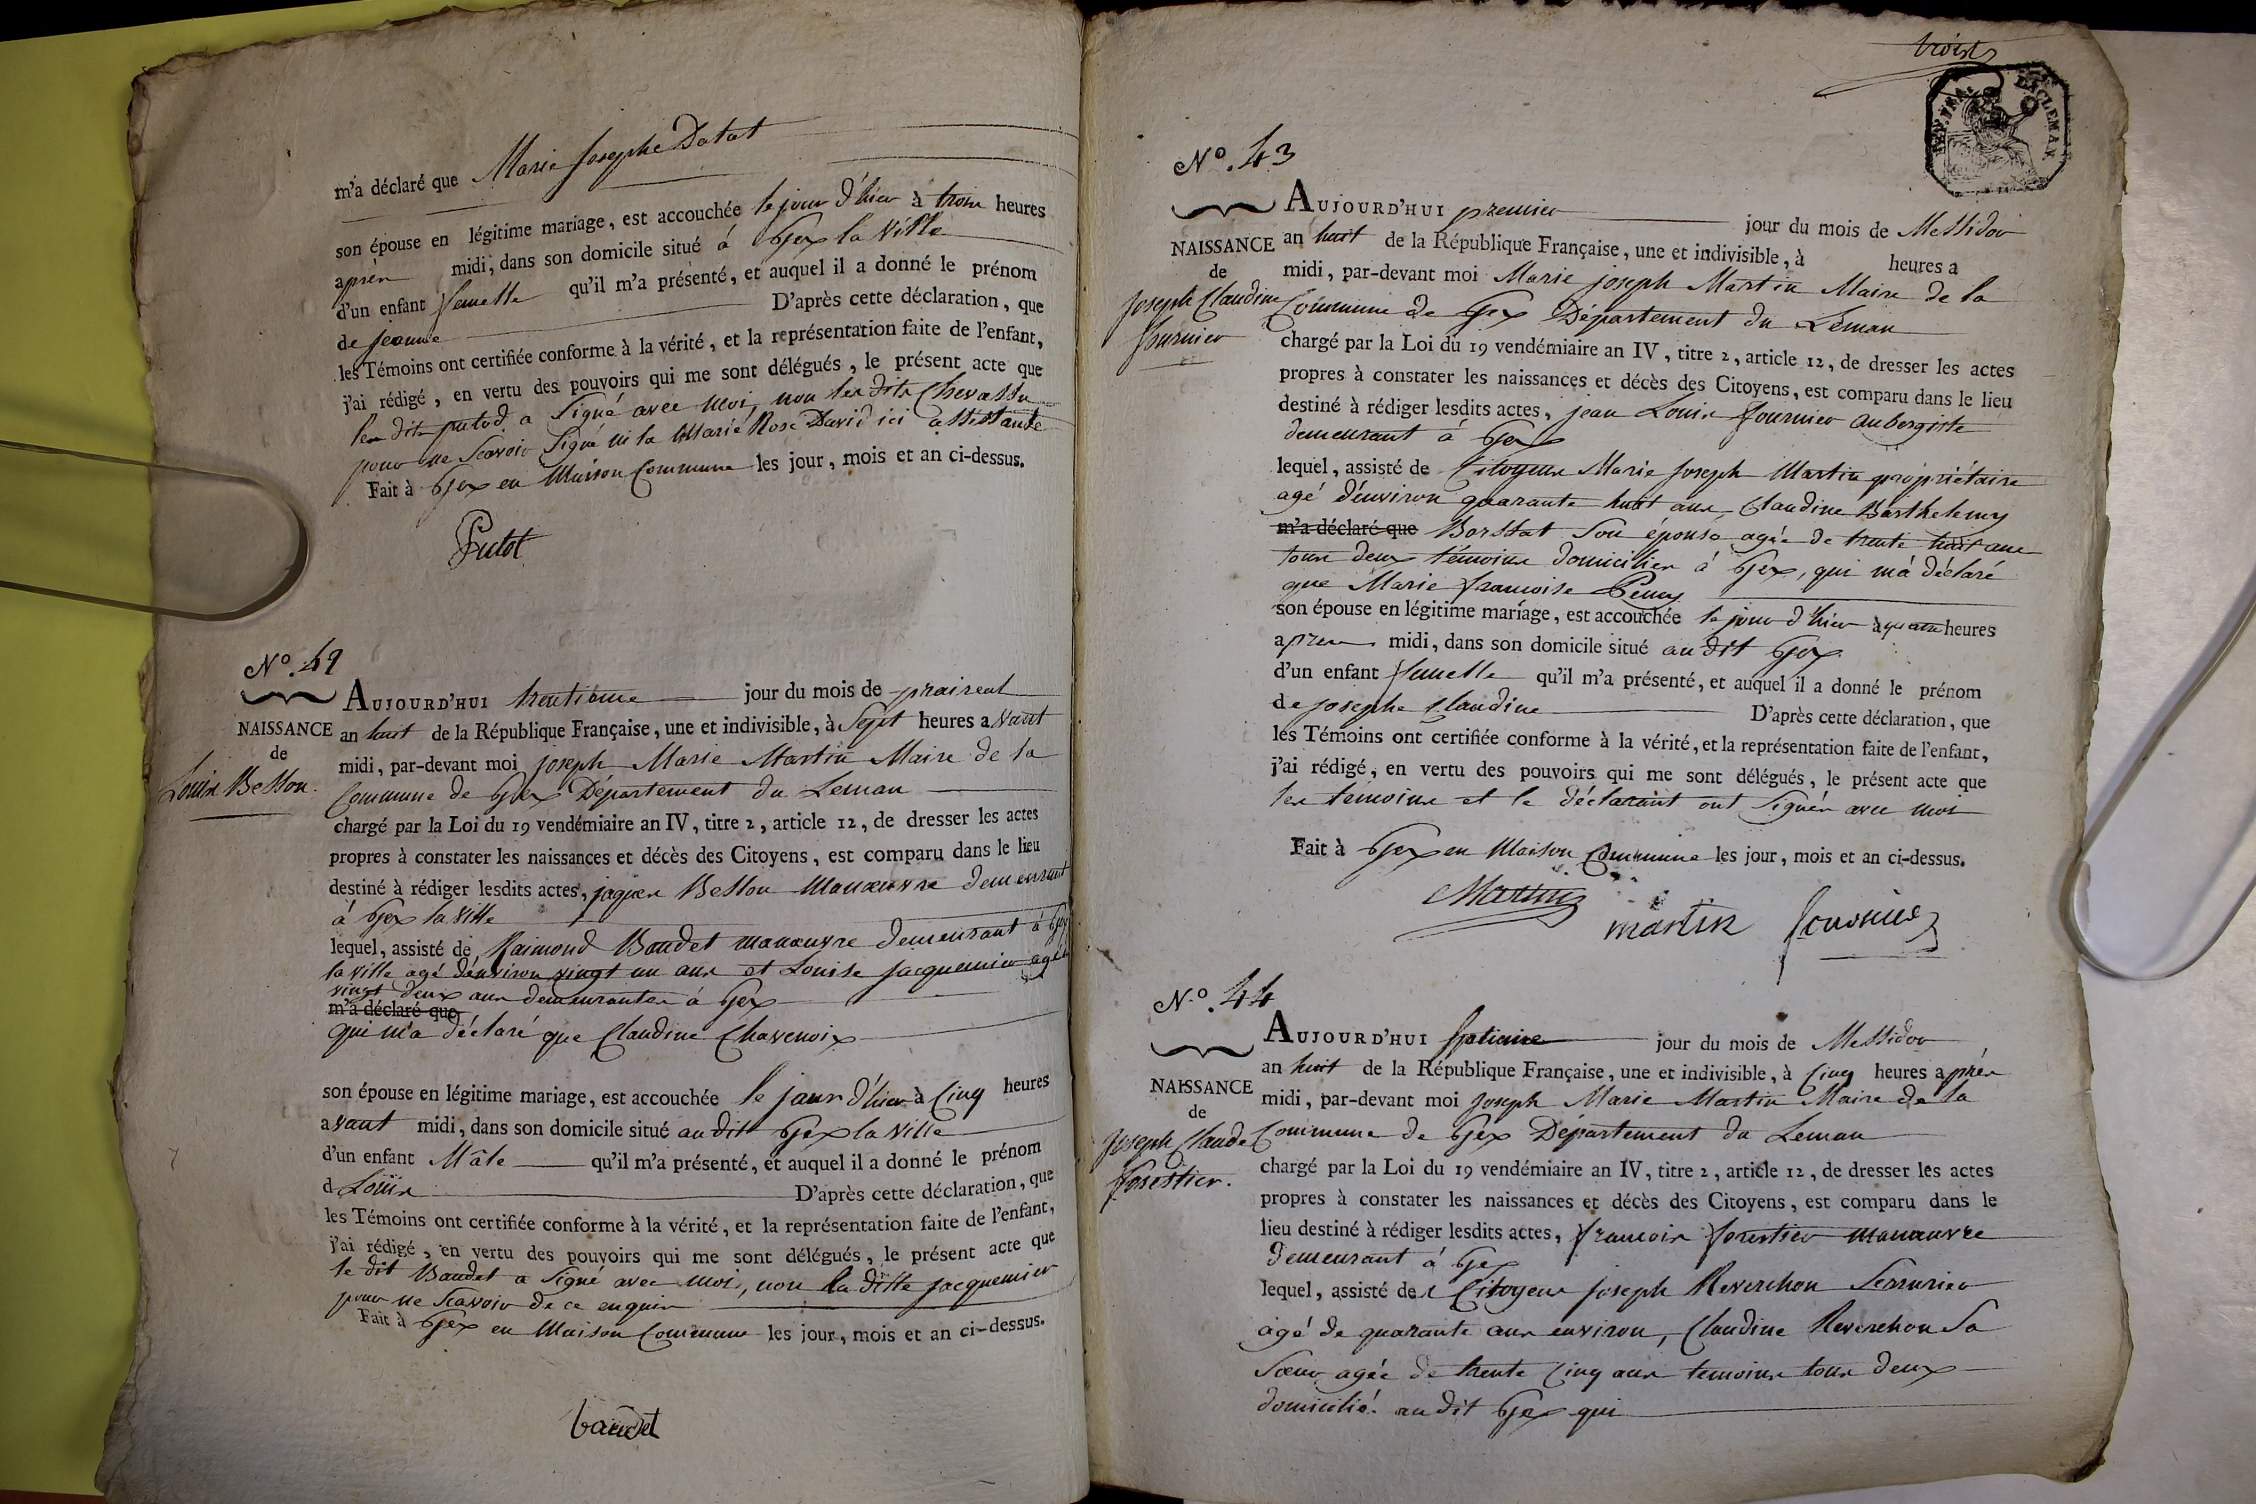 m'a déclaré que Marie Josephe Datat
son épouse en légitime mariage, est accouchée le jour d'hier à trois heures
après midi, dans son domicile situé à Gex la Ville
d'un enfant femelle qu'il m'a présenté, et auquel il a donné le prénom
de jeanne D'après cette déclaration, que
les Témoins ont certifiée conforme à la vérité, et la représentation faite de l'enfant,
j'ai rédigé, en vertu des pouvoirs qui me sont délégués, le présent acte que
les dits putod a Signé avec moi, non les dits Chevassu
pour ne Scavoir Signé ni la Marie Rose David ici assistante
Fait à Gex en Maison Commune les jour, mois et an ci-dessus.
Putot
N.º 42
AUJOURD'HUI trentième jour du mois de prairéal
NAISSANCE an huit de la République Française, une et indivisible, à Sept heures avant
de
midi, par-devant moi joseph Marie Martin Maire de la
Louis Besson.
Commune de Gex Département du Leman
chargé par la Loi du 19 vendémiaire an IV, titre 2, article 12, de dresser les actes
propres à constater les naissances et décès des Citoyens, est comparu dans le lieu
destiné à rédiger lesdits actes, jaques Besson Manœuvre demeurant
à Gex la ville
lequel, assisté de Raimond Baudet manœuvre demeurant à Gex
la ville agé d'environ vingt un ans et Louise jacquemier agée
vingt deux ans demeurantes à Gex
m'a déclaré que
qui m'a déclaré que Claudine Chavenoix
son épouse en légitime mariage, est accouchée le jour d'hier à Cinq heures
avant midi, dans son domicile situé au dit Gex la ville
d'un enfant Mâle qu'il m'a présenté, et auquel il a donné le prénom
d Loüis D'après cette déclaration, que
les Témoins ont certifiée conforme à la vérité, et la représentation faite de l'enfant,
j'ai rédigé, en vertu des pouvoirs qui me sont délégués, le présent acte que
le dit Baudet a Signé avec moi, non la ditte jacquemier
pour ne Scavoir de ce enquis
Fait à Gex en Maison Commune les jour, mois et an ci-dessus.
baudet
trois
N.º 43
AUJOURD'HUI premier jour du mois de Messidor
NAISSANCE an huit de la République Française, une et indivisible, à heures a
de
midi, par-devant moi Marie joseph Martin Maire de la
Joseph Claudine
Commune de Gex Département du Léman
fournier
chargé par la Loi du 19 vendémiaire an IV, titre 2, article 12, de dresser les actes
propres à constater les naissances et décès des Citoyens, est comparu dans le lieu
destiné à rédiger lesdits actes, jean Louis fournier aubergiste
demeurant à Gex
lequel, assisté de Citoyens Marie joseph Martin propriétaire
agé d'environ quarante huit ans, Claudine Barthelemy
m'a déclaré que Borssat Son épouse agée de trente huit ans
tous deux témoins domiciliés à Gex, qui m'a déclaré
que Marie françoise
son épouse en légitime mariage, est accouchée le jour d'hier à quatre heures
apres midi, dans son domicile situé au dit Gex
d'un enfant femelle qu'il m'a présenté, et auquel il a donné le prénom
de josephe Claudine D'après cette déclaration, que
les Témoins ont certifiée conforme à la vérité, et la représentation faite de l'enfant,
j'ai rédigé, en vertu des pouvoirs qui me sont délégués, le présent acte que
les témoins et le déclarant ont Signés avec moi
Fait à Gex en Maison Commune les jour, mois et an ci-dessus.
Martin
martin fournier
N.º 44
AUJOURD'HUI Septieme jour du mois de Messidor
an huit de la République Française, une et indivisible, à Cinq heures après
NAISSANCE
de
midi, par-devant moi joseph Marie Martin Maire de la
Joseph Claude
Commune de Gex Département du Leman
forestier.
chargé par la Loi du 19 vendémiaire an IV, titre 2, article 12, de dresser les actes
propres à constater les naissances et décès des Citoyens, est comparu dans le
lieu destiné à rédiger lesdits actes, françois forestier manœuvre
demeurant à Gex
lequel, assisté des Citoyens joseph Reverchon Serrurier
agé de quarante ans environ, Claudine Reverchon Sa
Sœur agée de trente Cinq ans temoins tous deux
domicilié. au dit Gex qui